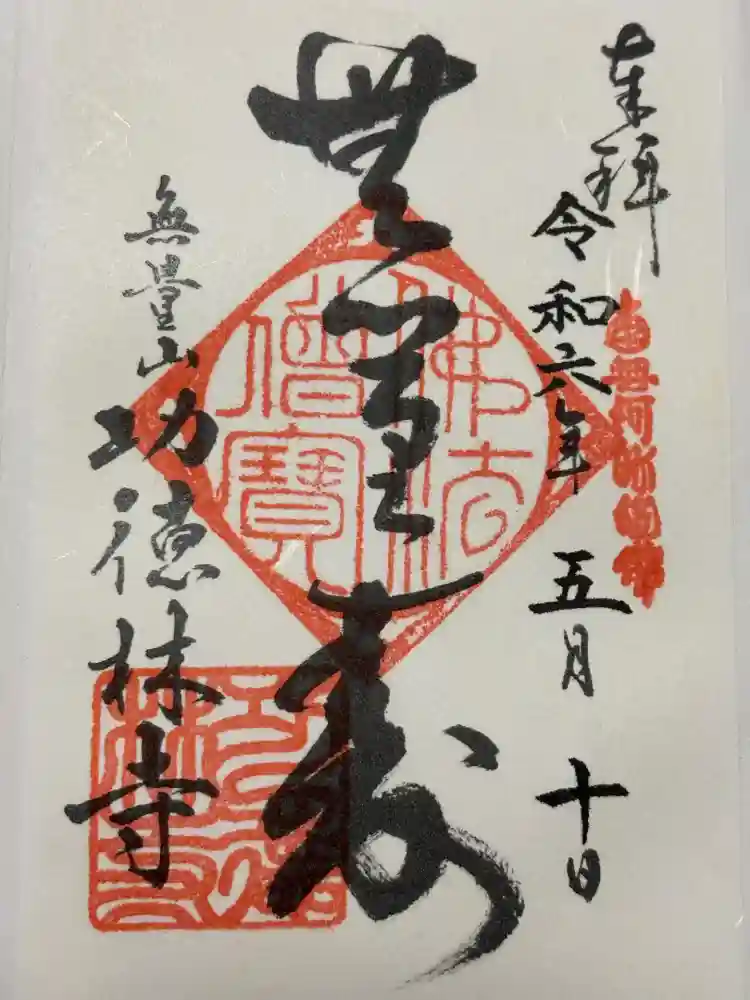 奉拝
令和六年 五月 十日
南無阿弥陀佛
無量壽
佛法
僧寶
無量山
功徳林寺